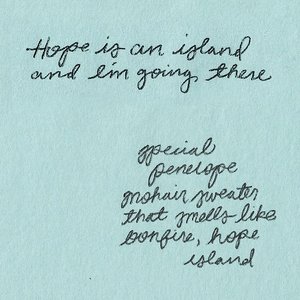 Hope is an island
and I'm going there
special
penelope
mohair sweater
that smells like
bonfire, hope
island